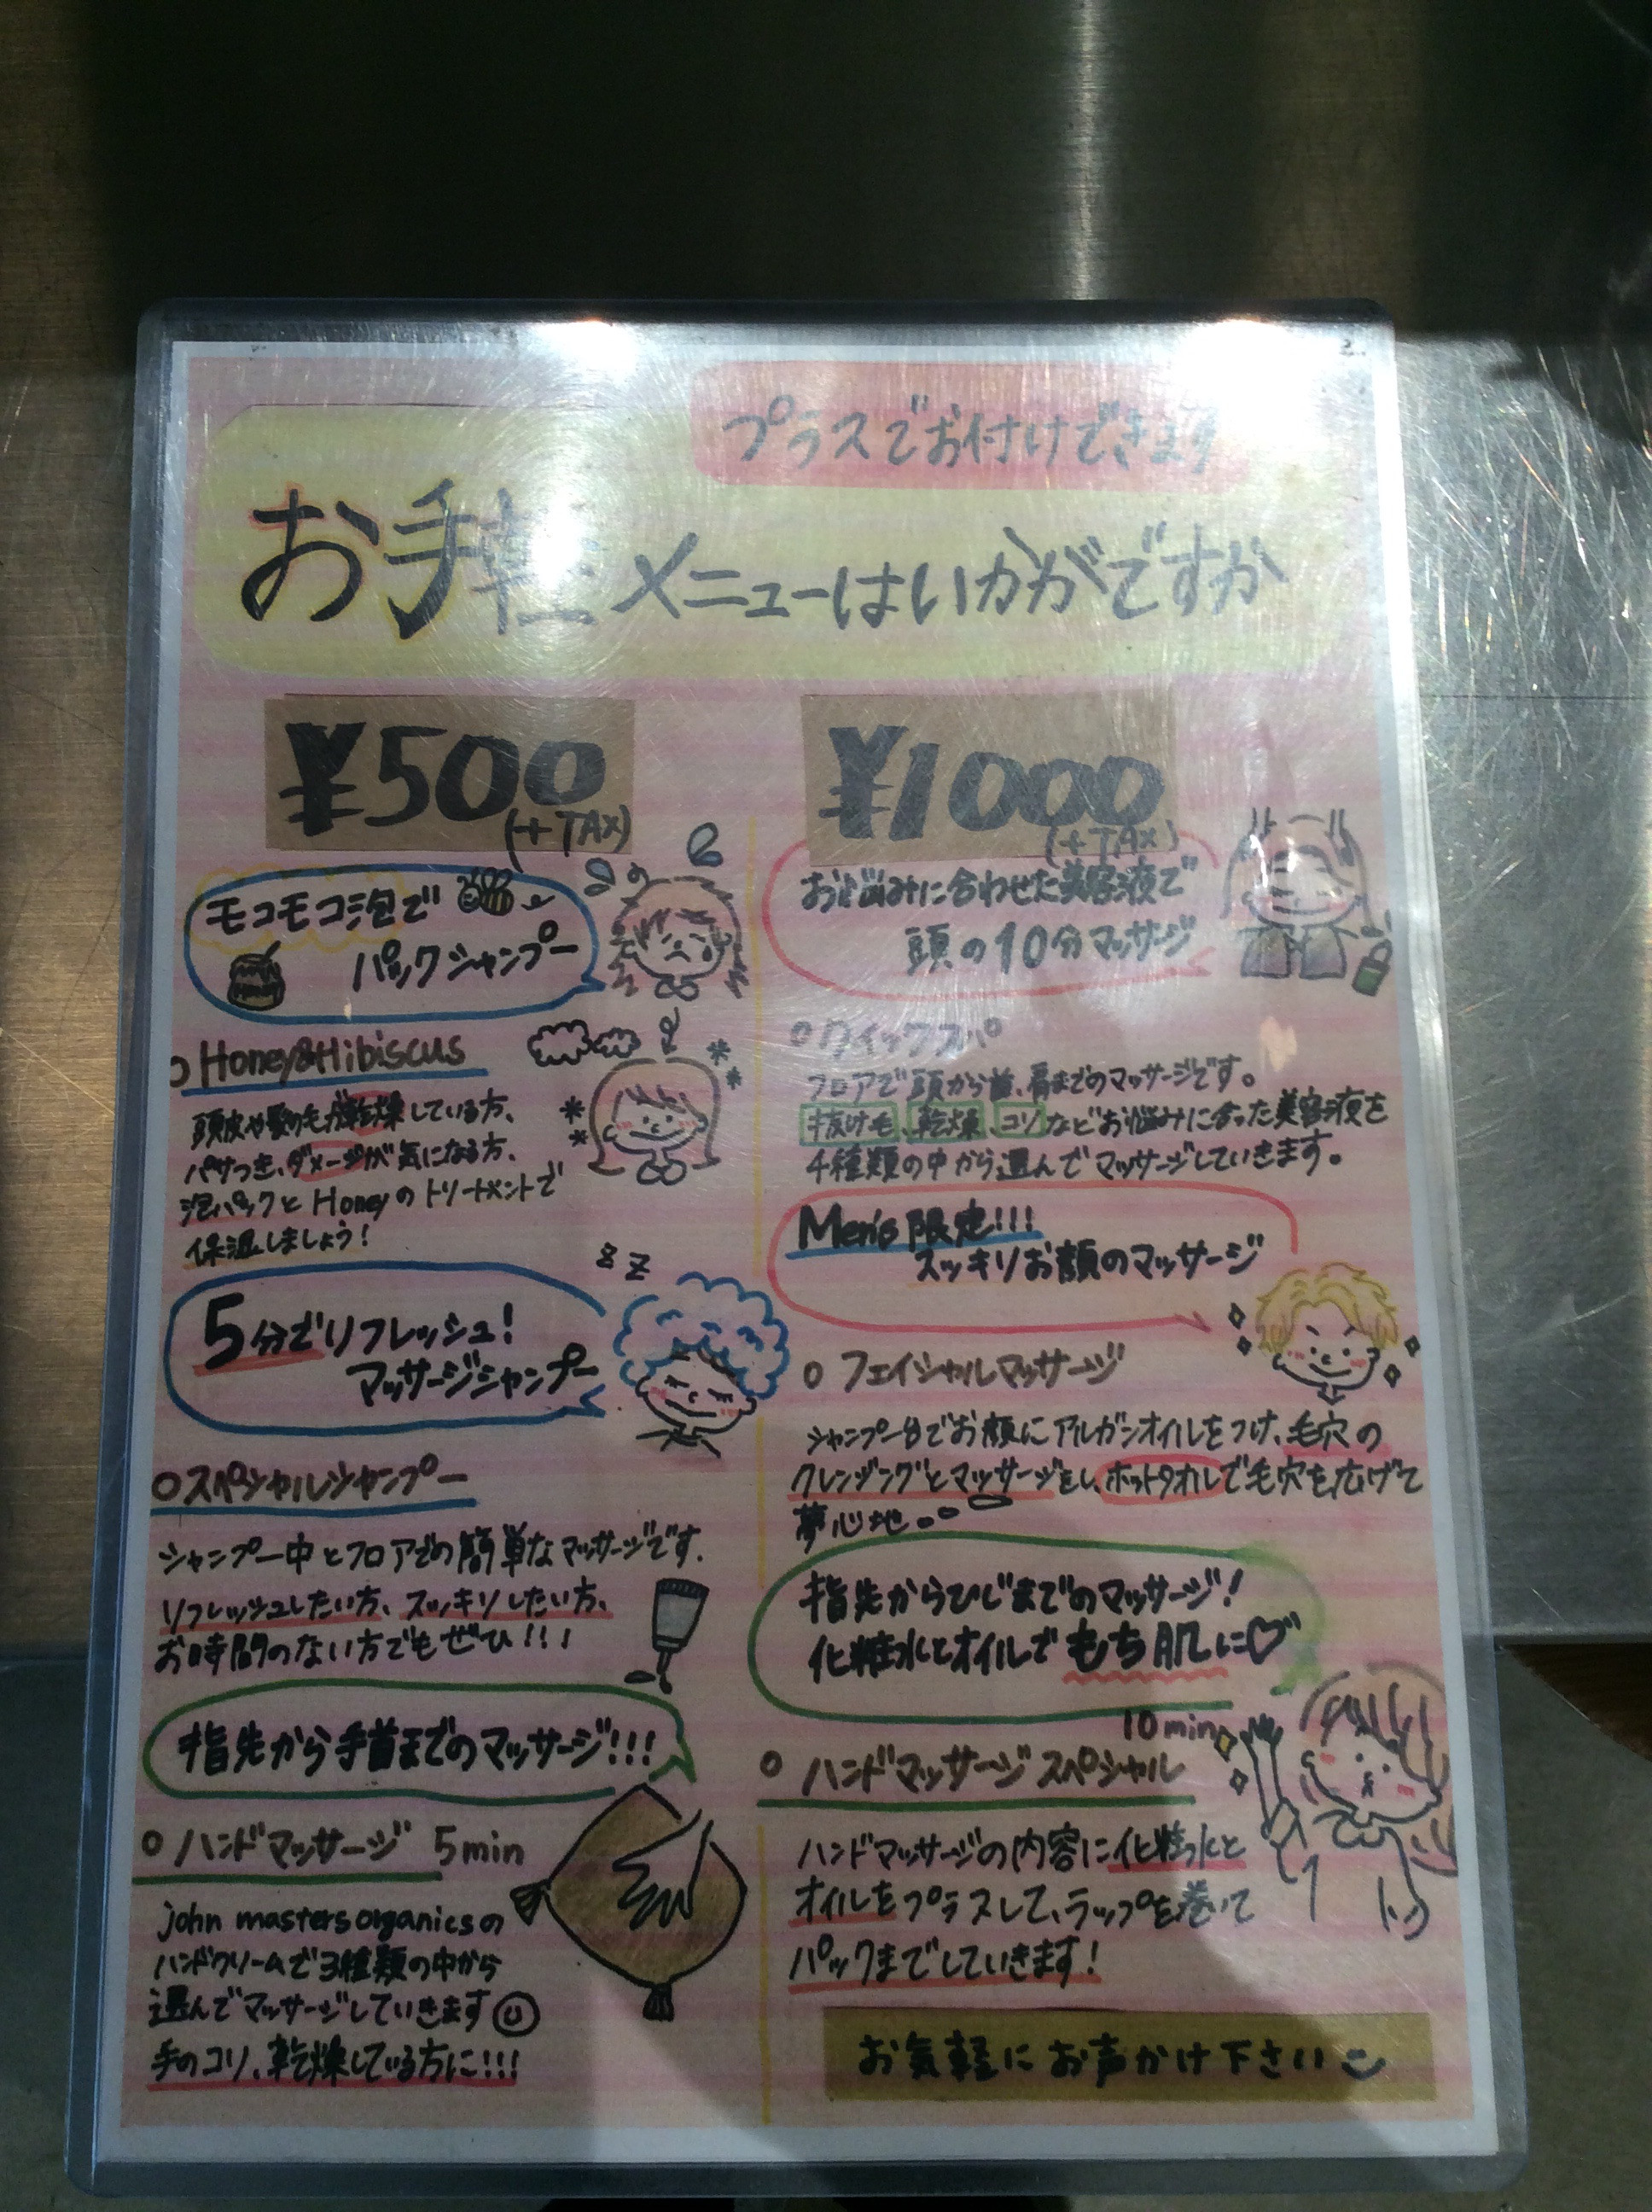 プラスでお付けできます
お手軽メニューはいかがですか
¥500
(+TAX)
モコモコ泡で
パックシャンプー
○Honey&Hibiscus
頭皮や髪の毛が乾燥している方、
パサつき、ダメージが気になる方、
泡パックとHoneyのトリートメントで
保湿しましょう!
zz
5分でリフレッシュ!
マッサージシャンプー
○スペシャルシャンプー
シャンプー中とフロアでの簡単なマッサージです.
リフレッシュしたい方、スッキリしたい方、
お時間のない方でもぜひ!!!
指先から手首までのマッサージ!!!
○ハンドマッサージ 5min
john masters organicsの
ハンドクリームで3種類の中から
選んでマッサージしていきます
手のコリ、乾燥している方に!!!
¥1000
(+TAX)
お悩みに合わせた美容液で
頭の10分マッサージ
○クイックスパ
フロアで頭から首、肩までのマッサージです。
抜け毛、乾燥、コリなどお悩みに合った美容液を
4種類の中から選んでマッサージしていきます。
Men's限定!!!
スッキリお顔のマッサージ
○フェイシャルマッサージ
シャンプー台でお顔にアルガンオイルをつけ、毛穴の
クレンジングとマッサージをし、ホットタオルで毛穴を広げて
夢心地
指先からひじまでのマッサージ!
化粧水とオイルでもち肌に♡
10min
○ハンドマッサージスペシャル
ハンドマッサージの内容に化粧水と
オイルをプラスして、ラップを巻いて
パックまでしていきます!
お気軽にお声かけ下さい